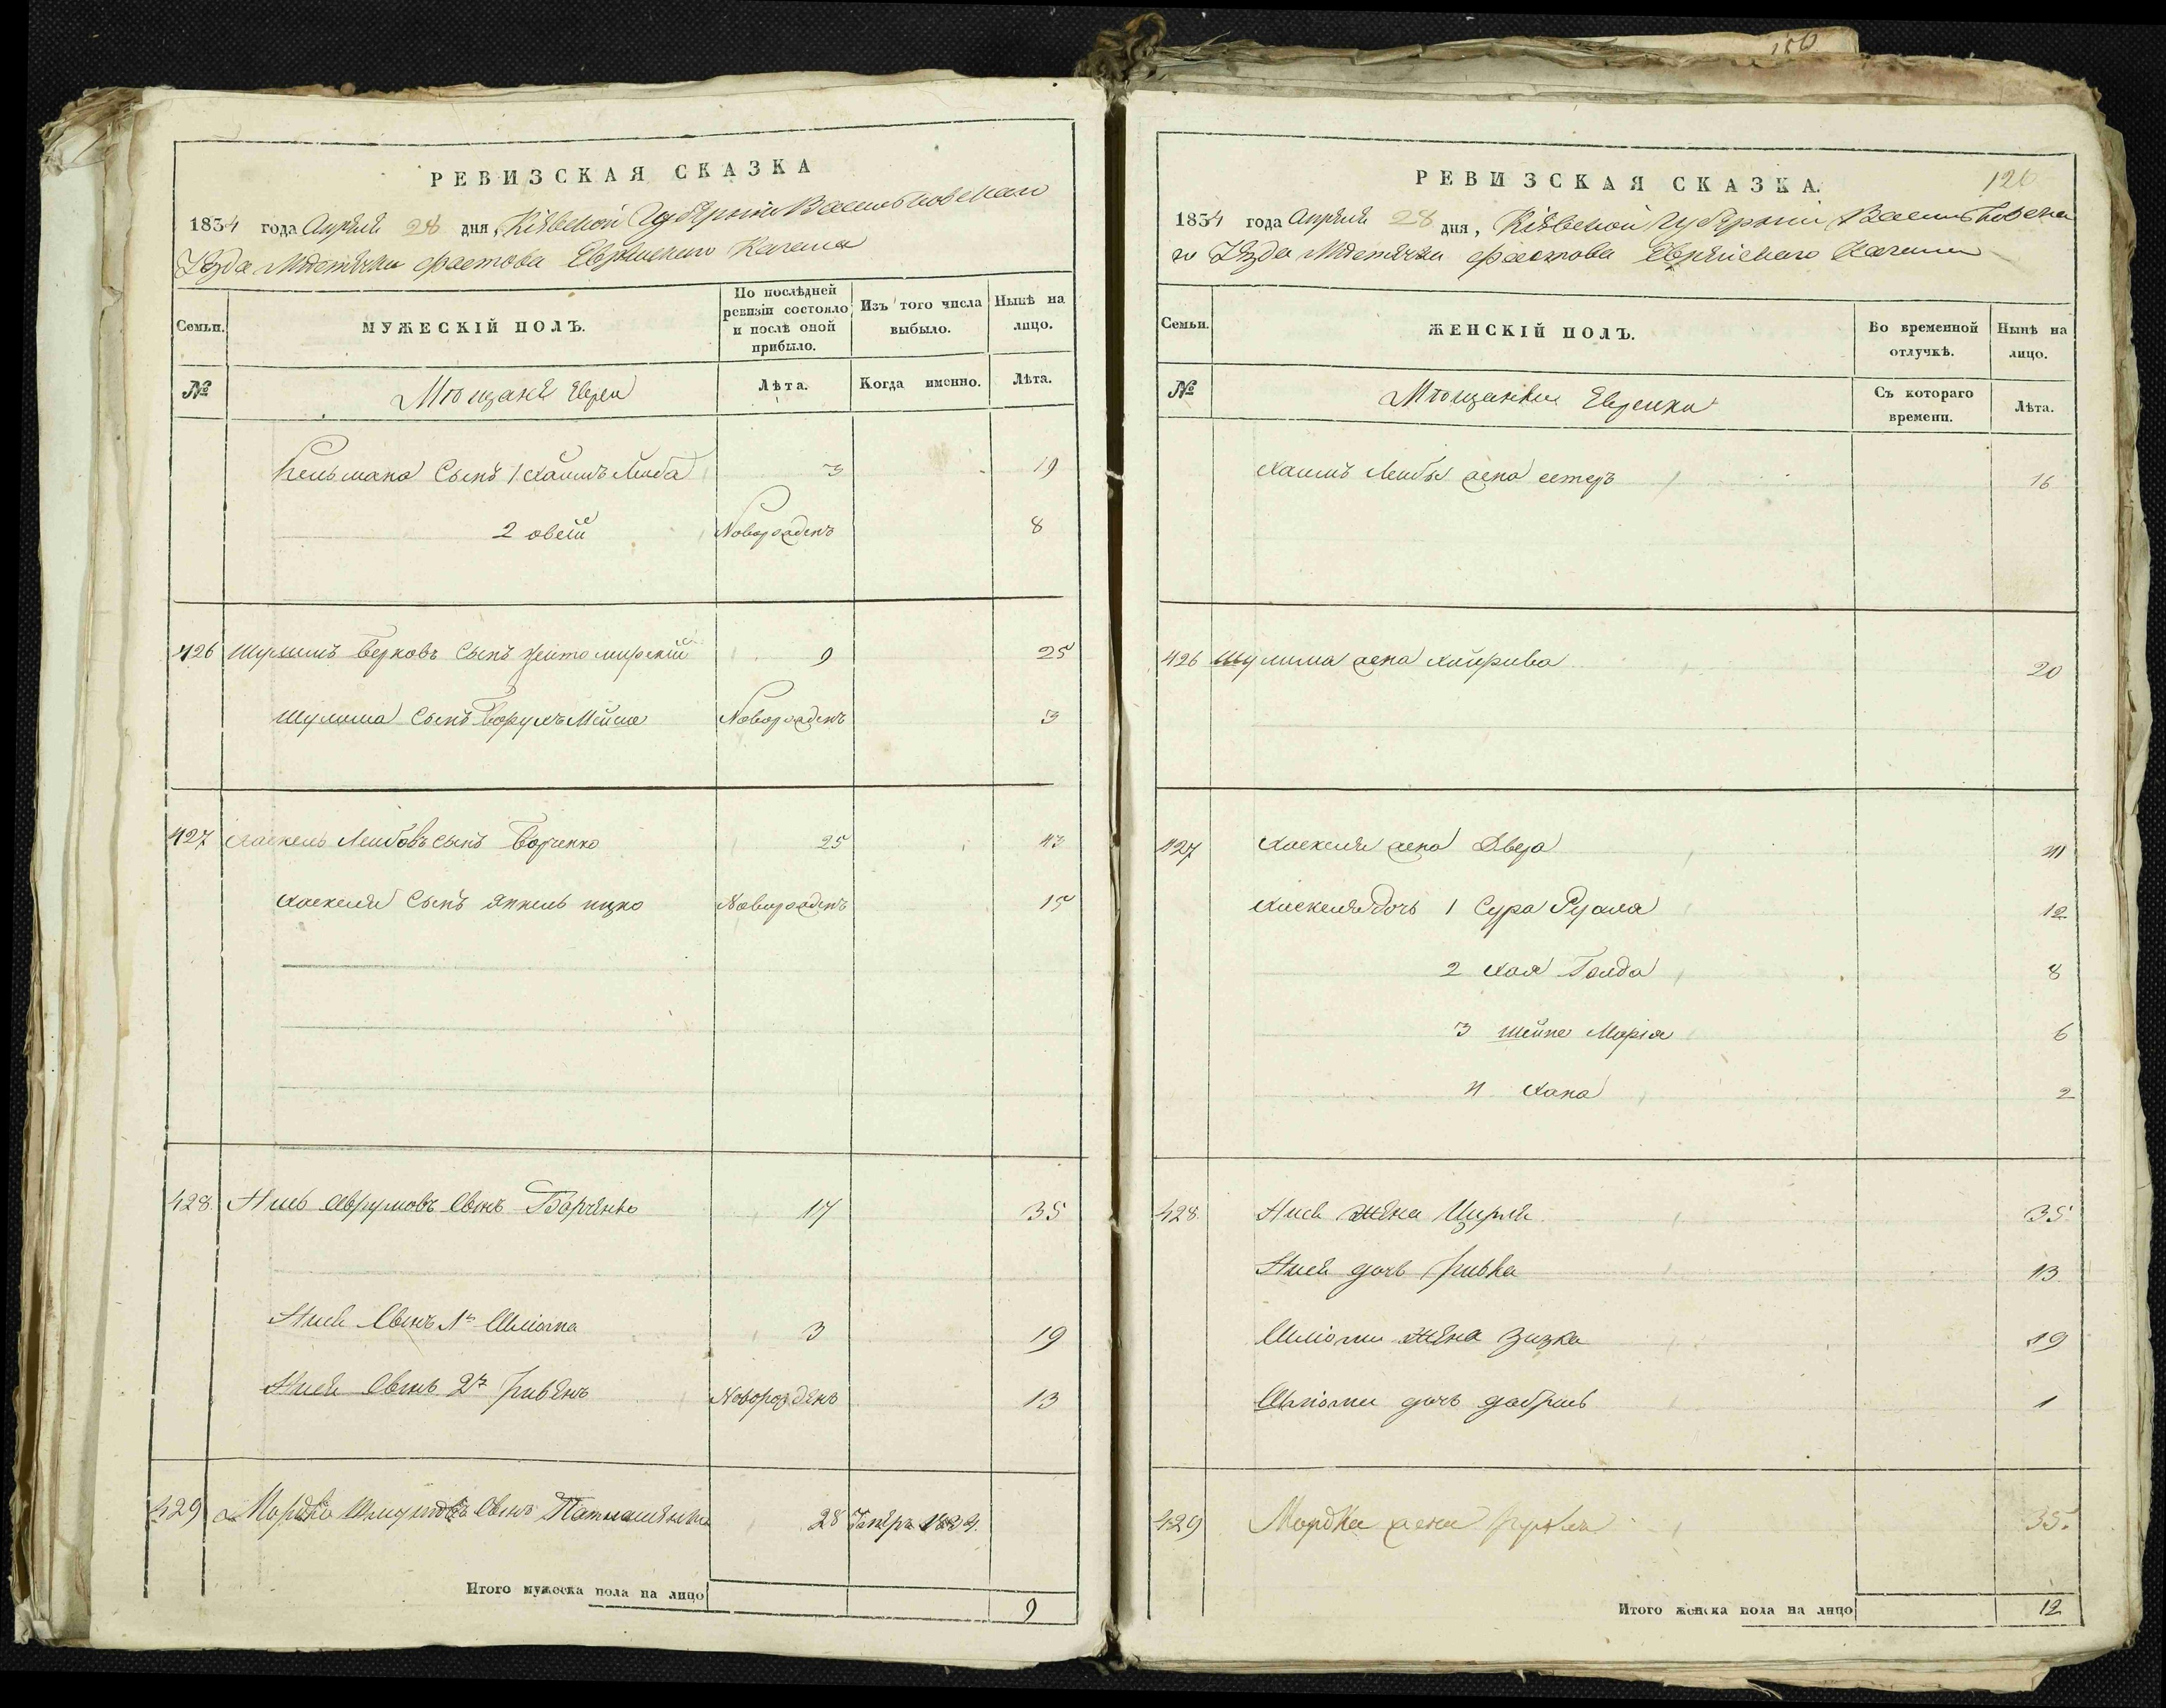 150
РЕВИЗСКАЯ СКАЗКА
1834 года Апреля 28 дня, Кіевской Губерніи Васильковскаго
Уезда Местечка Фастова Еврейскаго Кагала
Семьи.
МУЖЕСКІЙ ПОЛЪ.
По послѣдней ревизіи состояло и послѣ оной прибыло.
Изъ того числа выбыло.
Нынѣ на лицо.
№
Мѣщане Евреи
Лѣта.
Когда именно.
Лѣта.
Кельмана Сынъ 1 Хаимъ Лейба 3 19
2 овсій Новорожденъ 8
426 Шулимъ Берковъ Сынъ Житомирскій 9 25
Шулима Сынъ Борухъ Мойше Новорожденъ 3
427 Хаскель Лейбовъ сынъ Борченко 25 43
Хаскеля Сынъ Янкель ицко Новорожденъ 15
428. Аврумовъ Сынъ Борченко 17 35
Сынъ 1й Шліома 3 19
Сынъ 2й Новорожденъ 13
429 Мордко Сынъ 28 1834.
Итого мужеска пола на лицо 9
РЕВИЗСКАЯ СКАЗКА.
126
1834 года Апреля 28 дня, Кіевской Губерніи Васильковска
го Уезда Местечка Фастова Еврейскаго Кагала
Семьи.
ЖЕНСКІЙ ПОЛЪ.
Во временной отлучкѣ.
Нынѣ на лицо.
№
Мѣщанки Еврейки
Съ котораго времени.
Лѣта.
Хаимъ Лейбы жена естеръ 16
426 Шулима жена 20
427 Хаскеля жена Двера 41
Хаскеля дочь 1 Сура Рухля 12
2 Хая Голда 8
3 шейне Марія 6
4 Хана 2
428. жена Цирля 35
дочь Ривка 13.
Шліоми жена Зизка 19
Шліоми дочь добришь 1
429 Мордка жена 35.
Итого женска пола на лицо 12